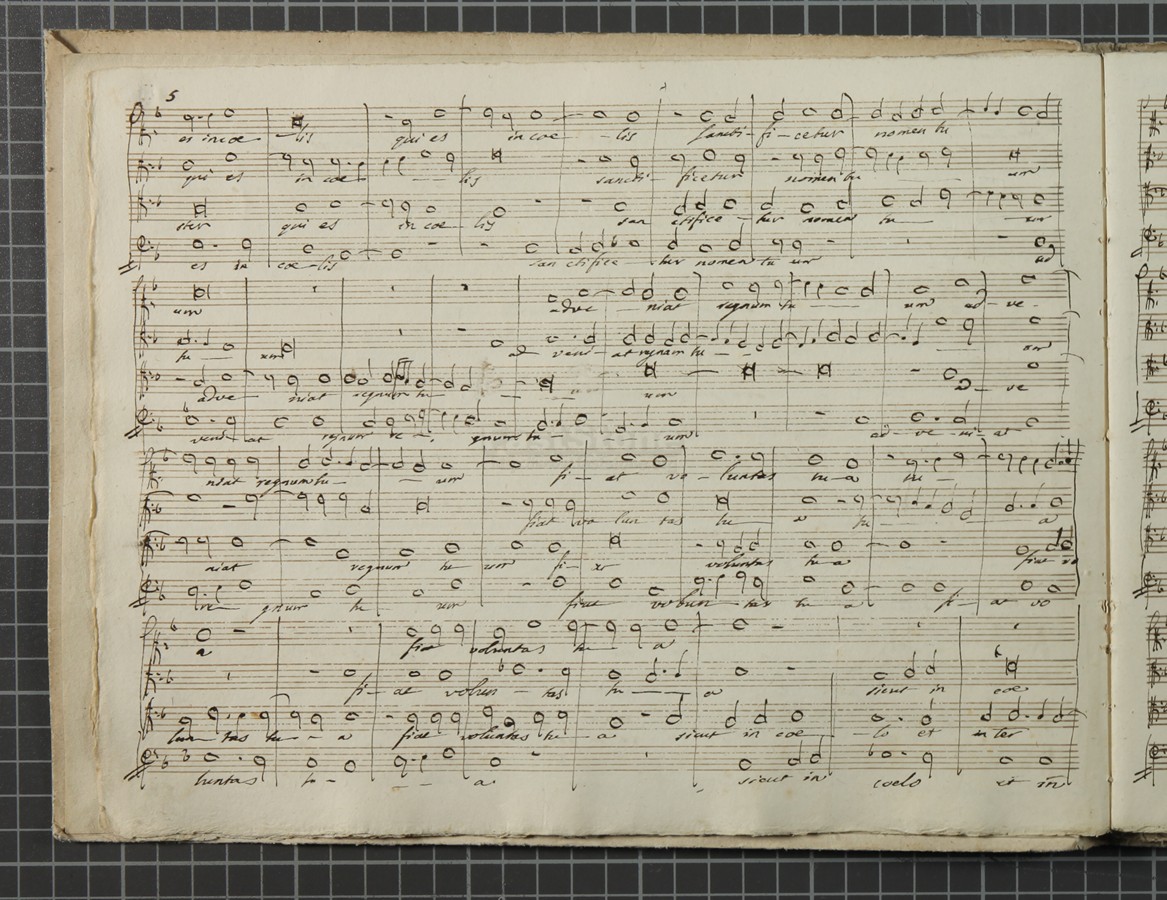 5
es in coe - lis qui es in coe - lis sancti - fi - cetur nomen tu
qui es in coe - - - lis sancti - ficetur nomen tu um
ster qui es in coe - lis san ctifice - tur nomen tu - um
es in coe - lis san ctifice - tur nomen tu um ad
um adve - niat regnum tu - um ad - ve -
tu - um ad veni - at regnum tu - - um
adve - niat regnum tu - - - um ad - ve
veni - at regnum tu - gnum tu um ad - ve - ni - at
niat regnum tu - - um fi - at vo - luntas tu - a tu -
fiat vo lun tas tu - a tu - a
niat regnum tu - um fi - at voluntas tu - a fiat vo
re - gnum tu um fiat volun - tas tu - a fi - at vo
a fiat voluntas tu - a
fi - at volun - tas tu - a sicut in coe
lun tas tu - a fiat voluntas tu - a sicut in coe - lo et in ter
luntas t - - - a sicut in coelo et in